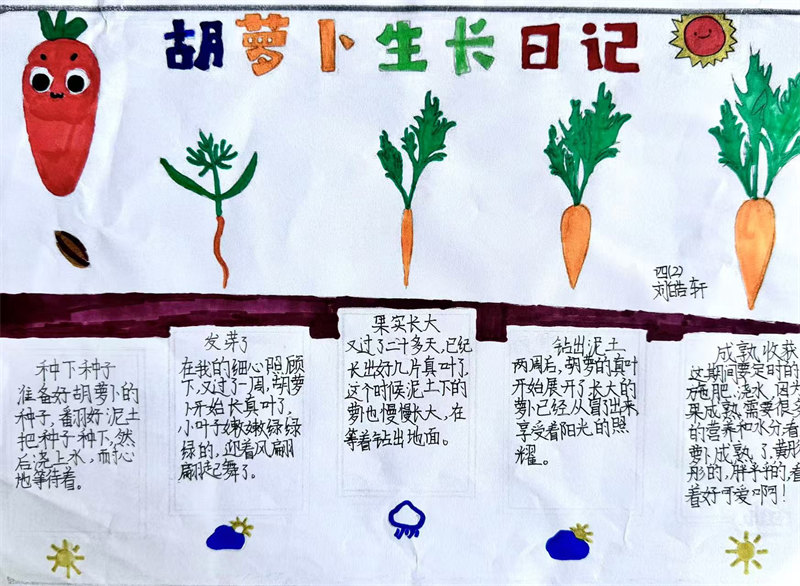 胡萝卜生长日记
四(2)
刘皓轩
种下种子
准备好胡萝卜的
种子,翻好泥土
把种子种下,然
后浇上水,而扒心
地等待着。
发芽了
在我的细心照顾
下,又过了一周,胡萝
卜开始长真叶了,
小叶子嫩嫩绿绿
绿的,迎着风翩
翩起舞了。
果实长大
又过了二十多天,已经
长出好几片真叶了,
这个时候泥土下的
萝卜也慢慢长大,在
等着钻出地面。
钻出泥土
两周后,胡萝的真叶
开始展开了长大的
萝卜已经从冒了出来,
享受着阳光的照
耀。
成熟收获
这期间要定时的
施肥、浇水,因为
果成熟需要很多
的营养和水分看
萝卜成熟了,黄彤
彤的,胖乎乎的,看
着好可爱啊!